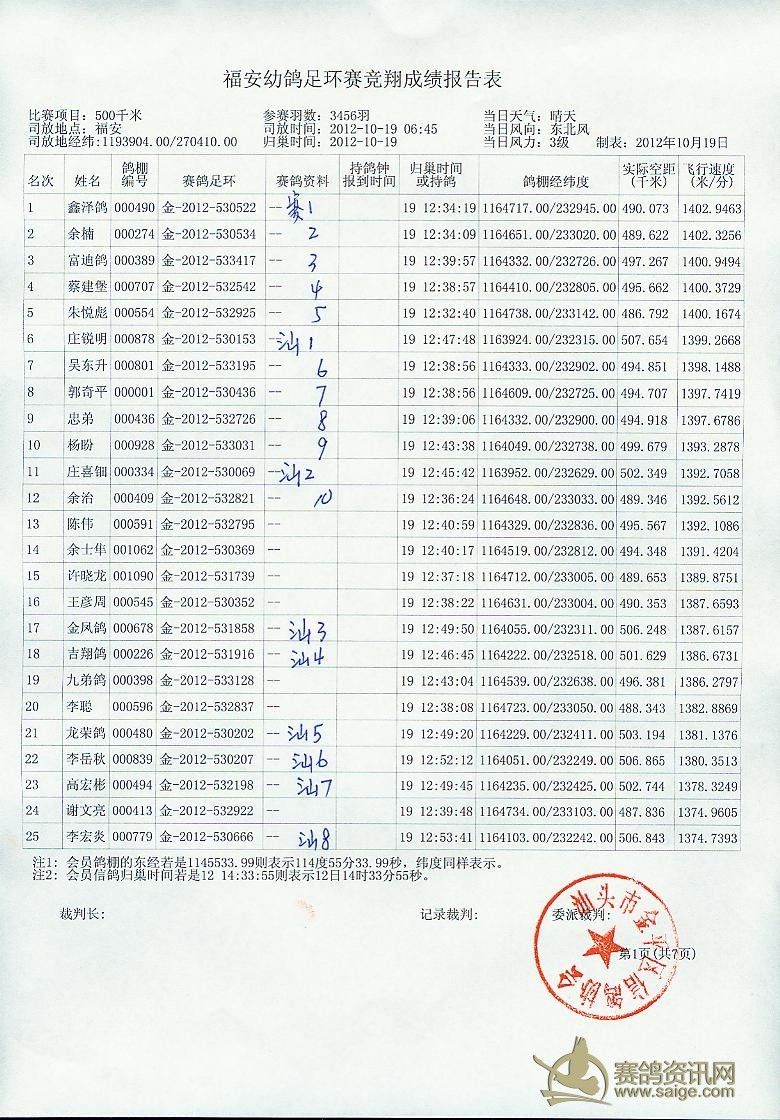 福安幼鸽足环赛竞翔成绩报告表
比赛项目: 500千米 参赛羽数: 3456羽 当日天气: 晴天
司放地点: 福安 司放时间: 2012-10-19 06:45 当日风向: 东北风
司放地经纬:1193904.00/270410.00 归巢时间: 2012-10-19 当日风力: 3级 制表: 2012年10月19日
名次 姓名 鸽棚编号 赛鸽足环 赛鸽资料 持鸽钟报到时间 归巢时间或持鸽 鸽棚经纬度 实际空距(千米) 飞行速度(米/分)
1 鑫泽鸽 000490 金-2012-530522 -- 赛1 19 12:34:19 1164717.00/232945.00 490.073 1402.9463
2 余楠 000274 金-2012-530534 -- 2 19 12:34:09 1164651.00/233020.00 489.622 1402.3256
3 富迪鸽 000389 金-2012-533417 -- 3 19 12:39:57 1164332.00/232726.00 497.267 1400.9494
4 蔡建堡 000707 金-2012-532542 -- 4 19 12:38:57 1164410.00/232805.00 495.662 1400.3729
5 朱悦彪 000554 金-2012-532925 -- 5 19 12:32:40 1164738.00/233142.00 486.792 1400.1674
6 庄锐明 000878 金-2012-530153 -- 汕1 19 12:47:48 1163924.00/232315.00 507.654 1399.2668
7 吴东升 000801 金-2012-533195 -- 6 19 12:38:56 1164333.00/232902.00 494.851 1398.1488
8 郭奇平 000001 金-2012-530436 -- 7 19 12:38:56 1164609.00/232725.00 494.707 1397.7419
9 忠弟 000436 金-2012-532726 -- 8 19 12:39:06 1164332.00/232900.00 494.918 1397.6786
10 杨盼 000928 金-2012-533031 -- 9 19 12:43:38 1164049.00/232738.00 499.679 1393.2878
11 庄喜钿 000334 金-2012-530069 -- 汕2 19 12:45:42 1163952.00/232629.00 502.349 1392.7058
12 余治 000409 金-2012-532821 -- 10 19 12:36:24 1164648.00/233033.00 489.346 1392.5612
13 陈伟 000591 金-2012-532795 -- 19 12:40:59 1164329.00/232836.00 495.567 1392.1086
14 余士隼 001062 金-2012-530369 -- 19 12:40:17 1164519.00/232812.00 494.348 1391.4204
15 许晓龙 001090 金-2012-531739 -- 19 12:37:18 1164712.00/233005.00 489.653 1389.8751
16 王彦周 000545 金-2012-530352 -- 19 12:38:22 1164631.00/233004.00 490.353 1387.6593
17 金凤鸽 000678 金-2012-531858 -- 汕3 19 12:49:50 1164055.00/232311.00 506.248 1387.6157
18 吉翔鸽 000226 金-2012-531916 -- 汕4 19 12:46:45 1164222.00/232518.00 501.629 1386.6731
19 九弟鸽 000398 金-2012-533128 -- 19 12:43:04 1164539.00/232638.00 496.381 1386.2797
20 李聪 000596 金-2012-532837 -- 19 12:38:08 1164723.00/233050.00 488.343 1382.8869
21 龙荣鸽 000480 金-2012-530202 -- 汕5 19 12:49:20 1164229.00/232411.00 503.194 1381.1376
22 李岳秋 000839 金-2012-530207 -- 汕6 19 12:52:12 1164051.00/232249.00 506.865 1380.3513
23 高宏彬 000494 金-2012-532198 -- 汕7 19 12:49:45 1164235.00/232425.00 502.744 1378.3249
24 谢文亮 000413 金-2012-532922 -- 19 12:39:48 1164734.00/233103.00 487.836 1374.9605
25 李宏炎 000779 金-2012-530666 -- 汕8 19 12:53:41 1164103.00/232242.00 506.843 1374.7393
注1: 会员鸽棚的东经若是1145533.99则表示114度55分33.99秒，纬度同样表示。
注2: 会员信鸽归巢时间若是12 14:33:55则表示12日14时33分55秒。
裁判长: 记录裁判: 委派裁判:
汕头市金平区信鸽协会
第1页(共7页)
赛鸽资讯网
www.saige.com